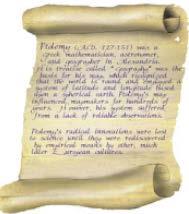 Ptolemy (A.D. 127-151) was a
Greek mathematician, astronomer,
and geographer in Alexandria.
His treatise called "Geography" was the
basis for his map, which recognized
that the world is round and employed a
system of latitude and longitude based
upon a spherical earth. Ptolemy's map
influenced mapmakers for hundreds of
years. However, his system suffered
from a lack of reliable observations.
Ptolemy's radical innovations were lost
to science until they were rediscovered
by empirical means by other, much
later European cultures.